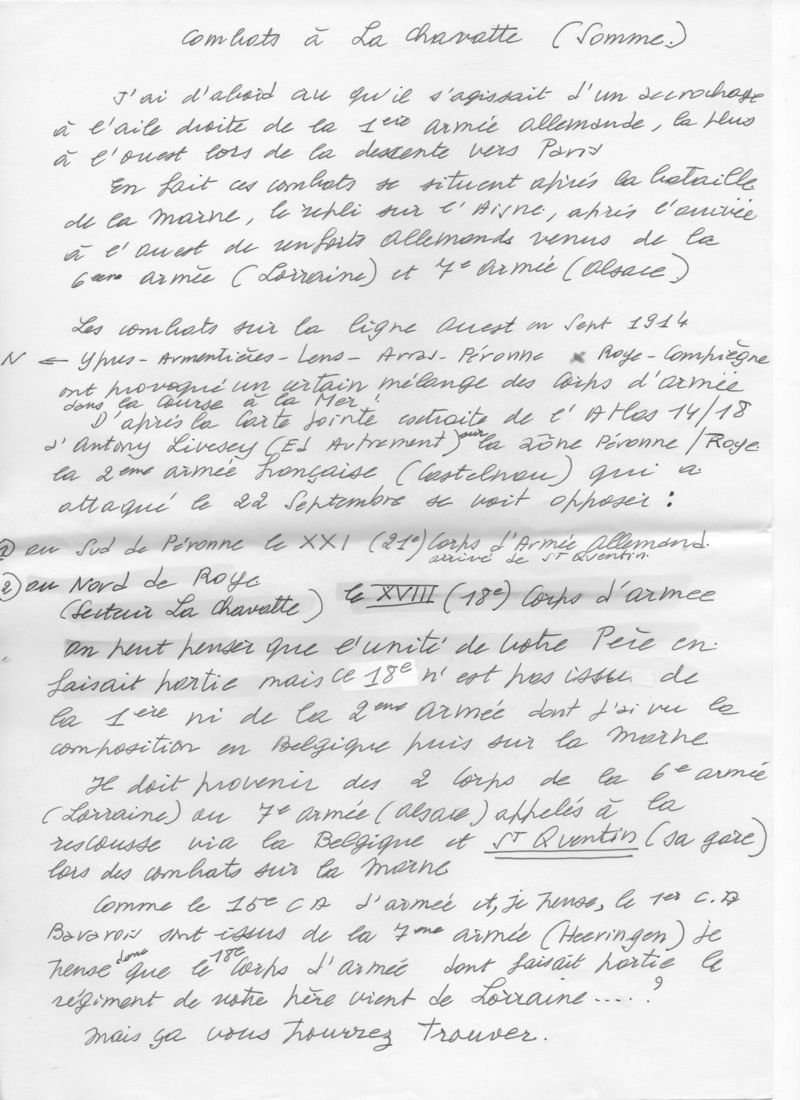 Combats à La Chavatte (Somme.)
J'ai d'abord cru qu'il s'agissait d'un accrochage
à l'aile droite de la 1ère armée allemande, la plus
à l'ouest lors de la descente vers Paris
En fait ces combats se situent après la bataille
de la Marne, le repli sur l'Aisne, après l'arrivée
à l'ouest de renforts allemands venus de la
6ème armée (Lorraine) et 7e Armée (Alsace)
Les combats sur la ligne ouest en Sept 1914
N ← Ypres - Armentières - Lens - Arras - Péronne x Roye - Compiègne
ont provoqué un certain mélange des Corps d'armée
dans la Course à la Mer !
D'après la Carte jointe extraite de l'Atlas 14/18
d'Antony Livesey (Ed Autrement) sur la zône Péronne/Roye
la 2ème armée française (Castelnau) qui a
attaqué le 22 Septembre se voit opposer :
1) au Sud de Péronne le XXI (21e) Corps d'Armée Allemand.
arrivé de St Quentin.
2) au Nord de Roye
(secteur La Chavatte) le XVIII (18e) Corps d'armée
on peut penser que l'unité de votre Père en
faisait partie mais ce 18e n'est pas issu de
la 1ère ni de la 2ème armée dont j'ai vu la
composition en Belgique puis sur la Marne
Il doit provenir des 2 Corps de la 6e armée
(Lorraine) ou 7e armée (Alsace) appelés à la
rescousse via la Belgique et St Quentin (sa gare)
lors des combats sur la Marne
Comme le 15e CA d'armée et, je pense, le 1er C.A
Bavarois sont issus de la 7ème armée (Heeringen) je
pense donc que le 18e Corps d'armée dont faisait partie le
régiment de votre père vient de Lorraine.....?
Mais ça vous pourrez trouver.